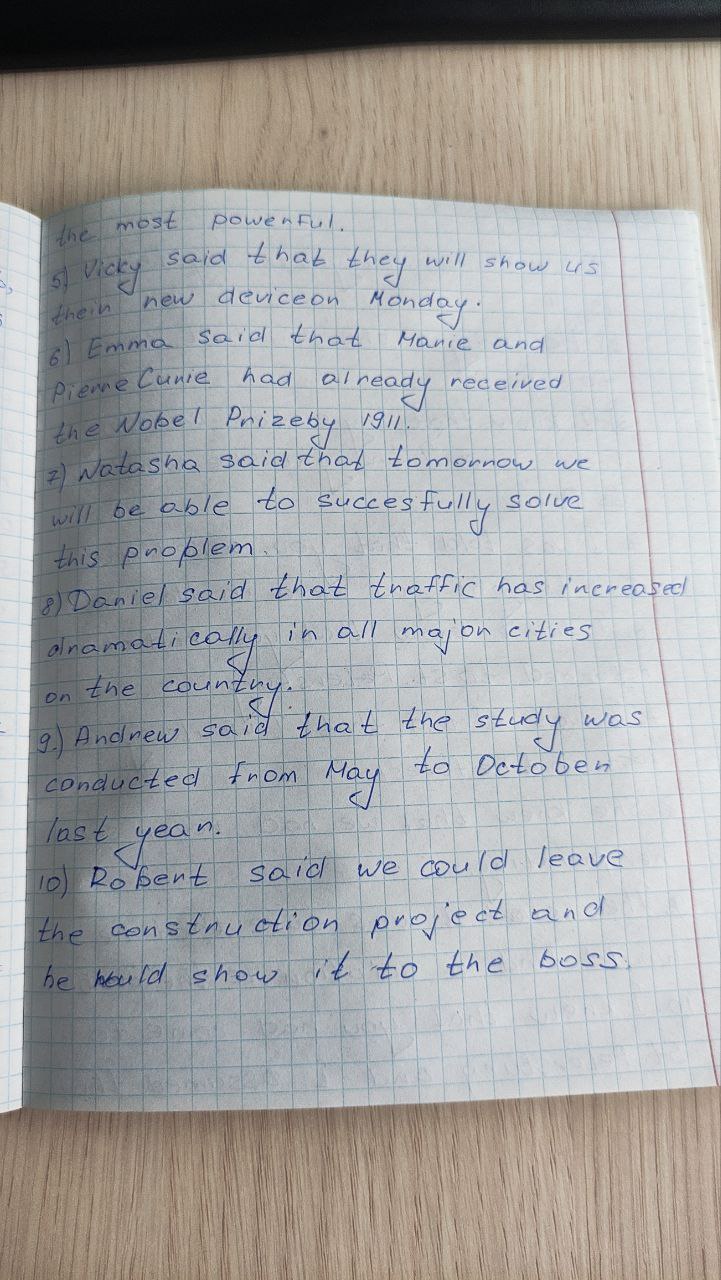 the most powerful.
5) Vicky said that they will show us
their new deviceon Monday.
6) Emma said that Marie and
Pierre Curie had already received
the Nobel Prizeby 1911.
7) Natasha said that tomorrow we
will be able to succesfully solve
this problem.
8) Daniel said that traffic has increased
dramatically in all major cities
on the country.
9.) Andrew said that the study was
conducted from May to October
last year.
10) Robert said we could leave
the construction project and
he would show it to the boss.